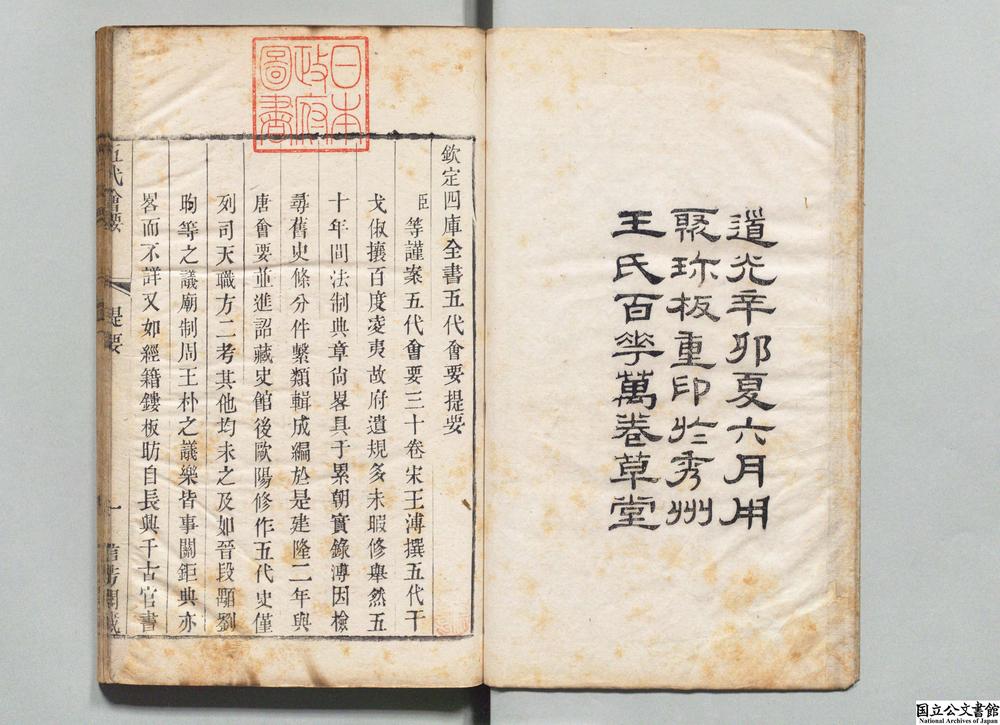 道光辛卯夏六月用
聚珍板重印於秀州
王氏百華萬卷草堂
日本
政府
圖書
欽定四庫全書五代會要提要
臣等謹案五代會要三十卷宋王溥撰五代干
戈俶攘百度凌夷故府遺規多未暇修舉然五
十年間法制典章尚畧具于累朝實錄溥因檢
尋舊史條分件繫類輯成編於是建隆二年與
唐會要並進詔藏史館後歐陽修作五代史僅
列司天職方二考其他均未之及如晉段顒劉
昫等之議廟制周王朴之議樂皆事關鉅典亦
畧而不詳又如經籍鏤板昉自長興千古官書
五代會要 提要 一 信芳閣藏
国立公文書館
National Archives of Japan